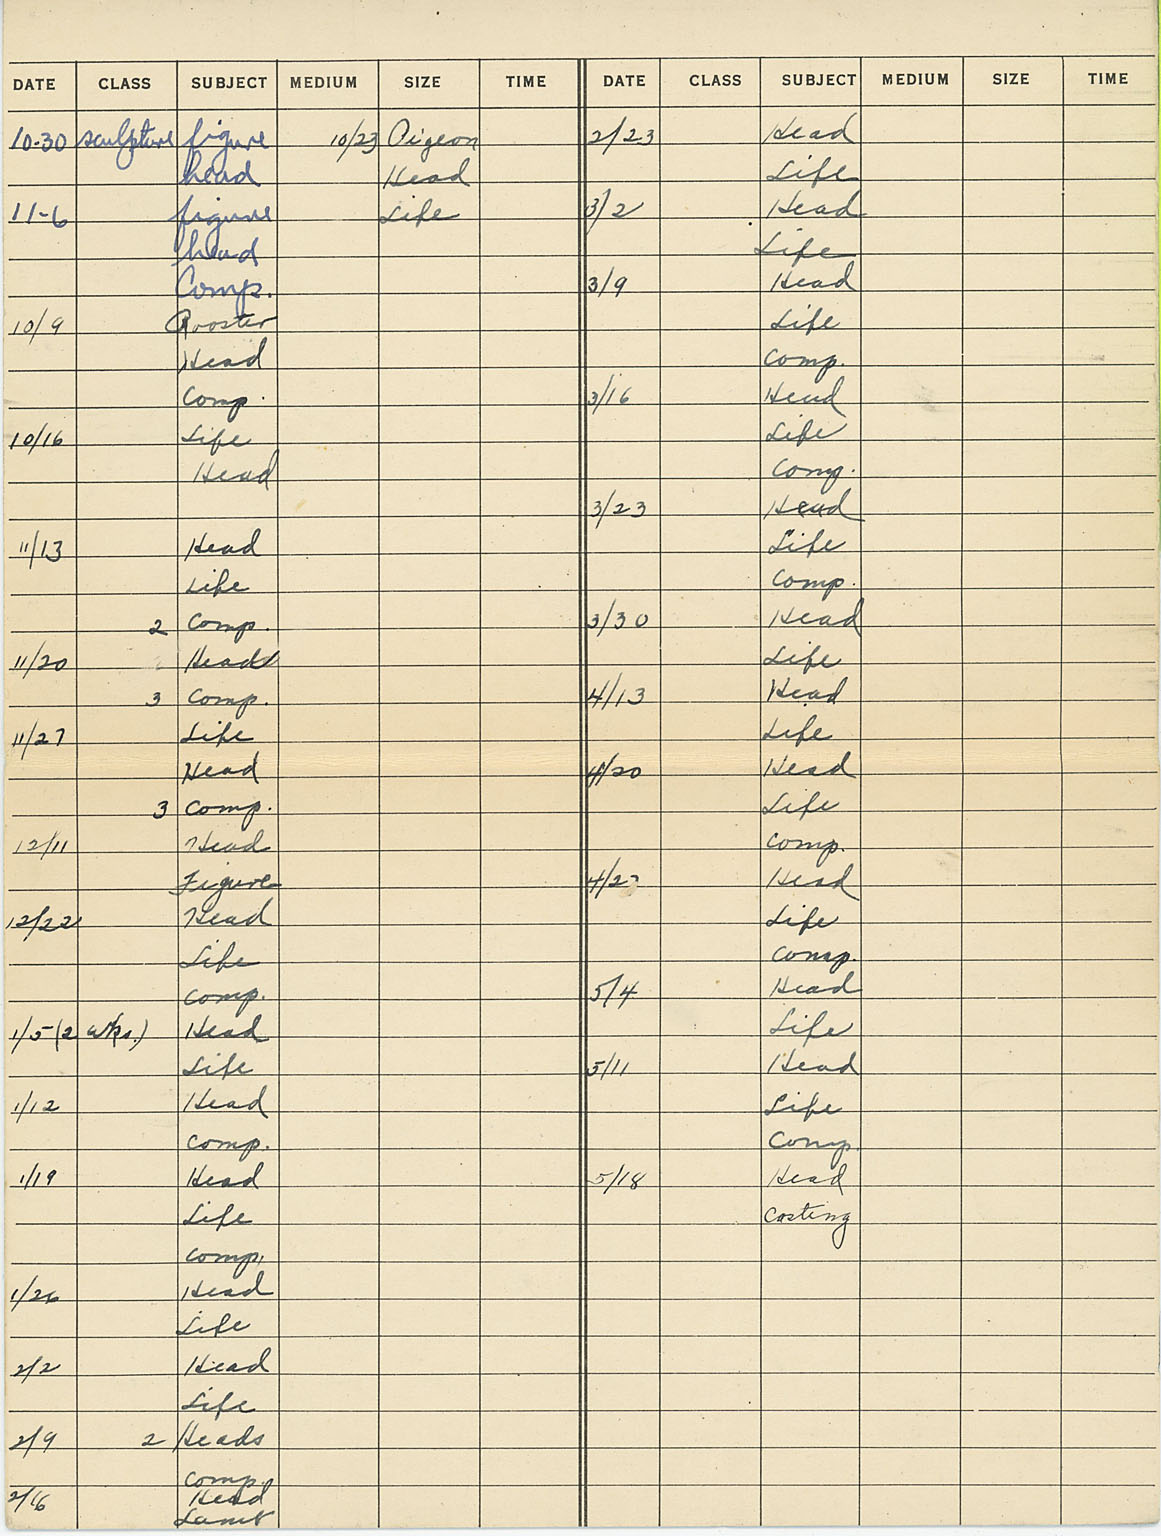 DATE CLASS SUBJECT MEDIUM SIZE TIME
10-30 sculpture figure 10/23 Pigeon
head Head
11-6 figure Life
head
Comp.
10/9 Rooster
Head
Comp.
10/16 Life
Head
11/13 Head
Life
2 Comp.
11/20 Head
3 Comp.
11/27 Life
Head
3 Comp.
12/11 Head
Figure
12/22 Head
Life
Comp.
1/5 (2 wks.) Head
Life
1/12 Head
Comp.
1/19 Head
Life
Comp.
1/26 Head
Life
2/2 Head
Life
2/9 2 Heads
Comp.
2/16 Head
Lamb
DATE CLASS SUBJECT MEDIUM SIZE TIME
2/23 Head
Life
3/2 Head
Life
3/9 Head
Life
Comp.
3/16 Head
Life
Comp.
3/23 Head
Life
Comp.
3/30 Head
Life
4/13 Head
Life
4/20 Head
Life
Comp.
4/27 Head
Life
Comp.
5/4 Head
Life
5/11 Head
Life
Comp.
5/18 Head
Casting